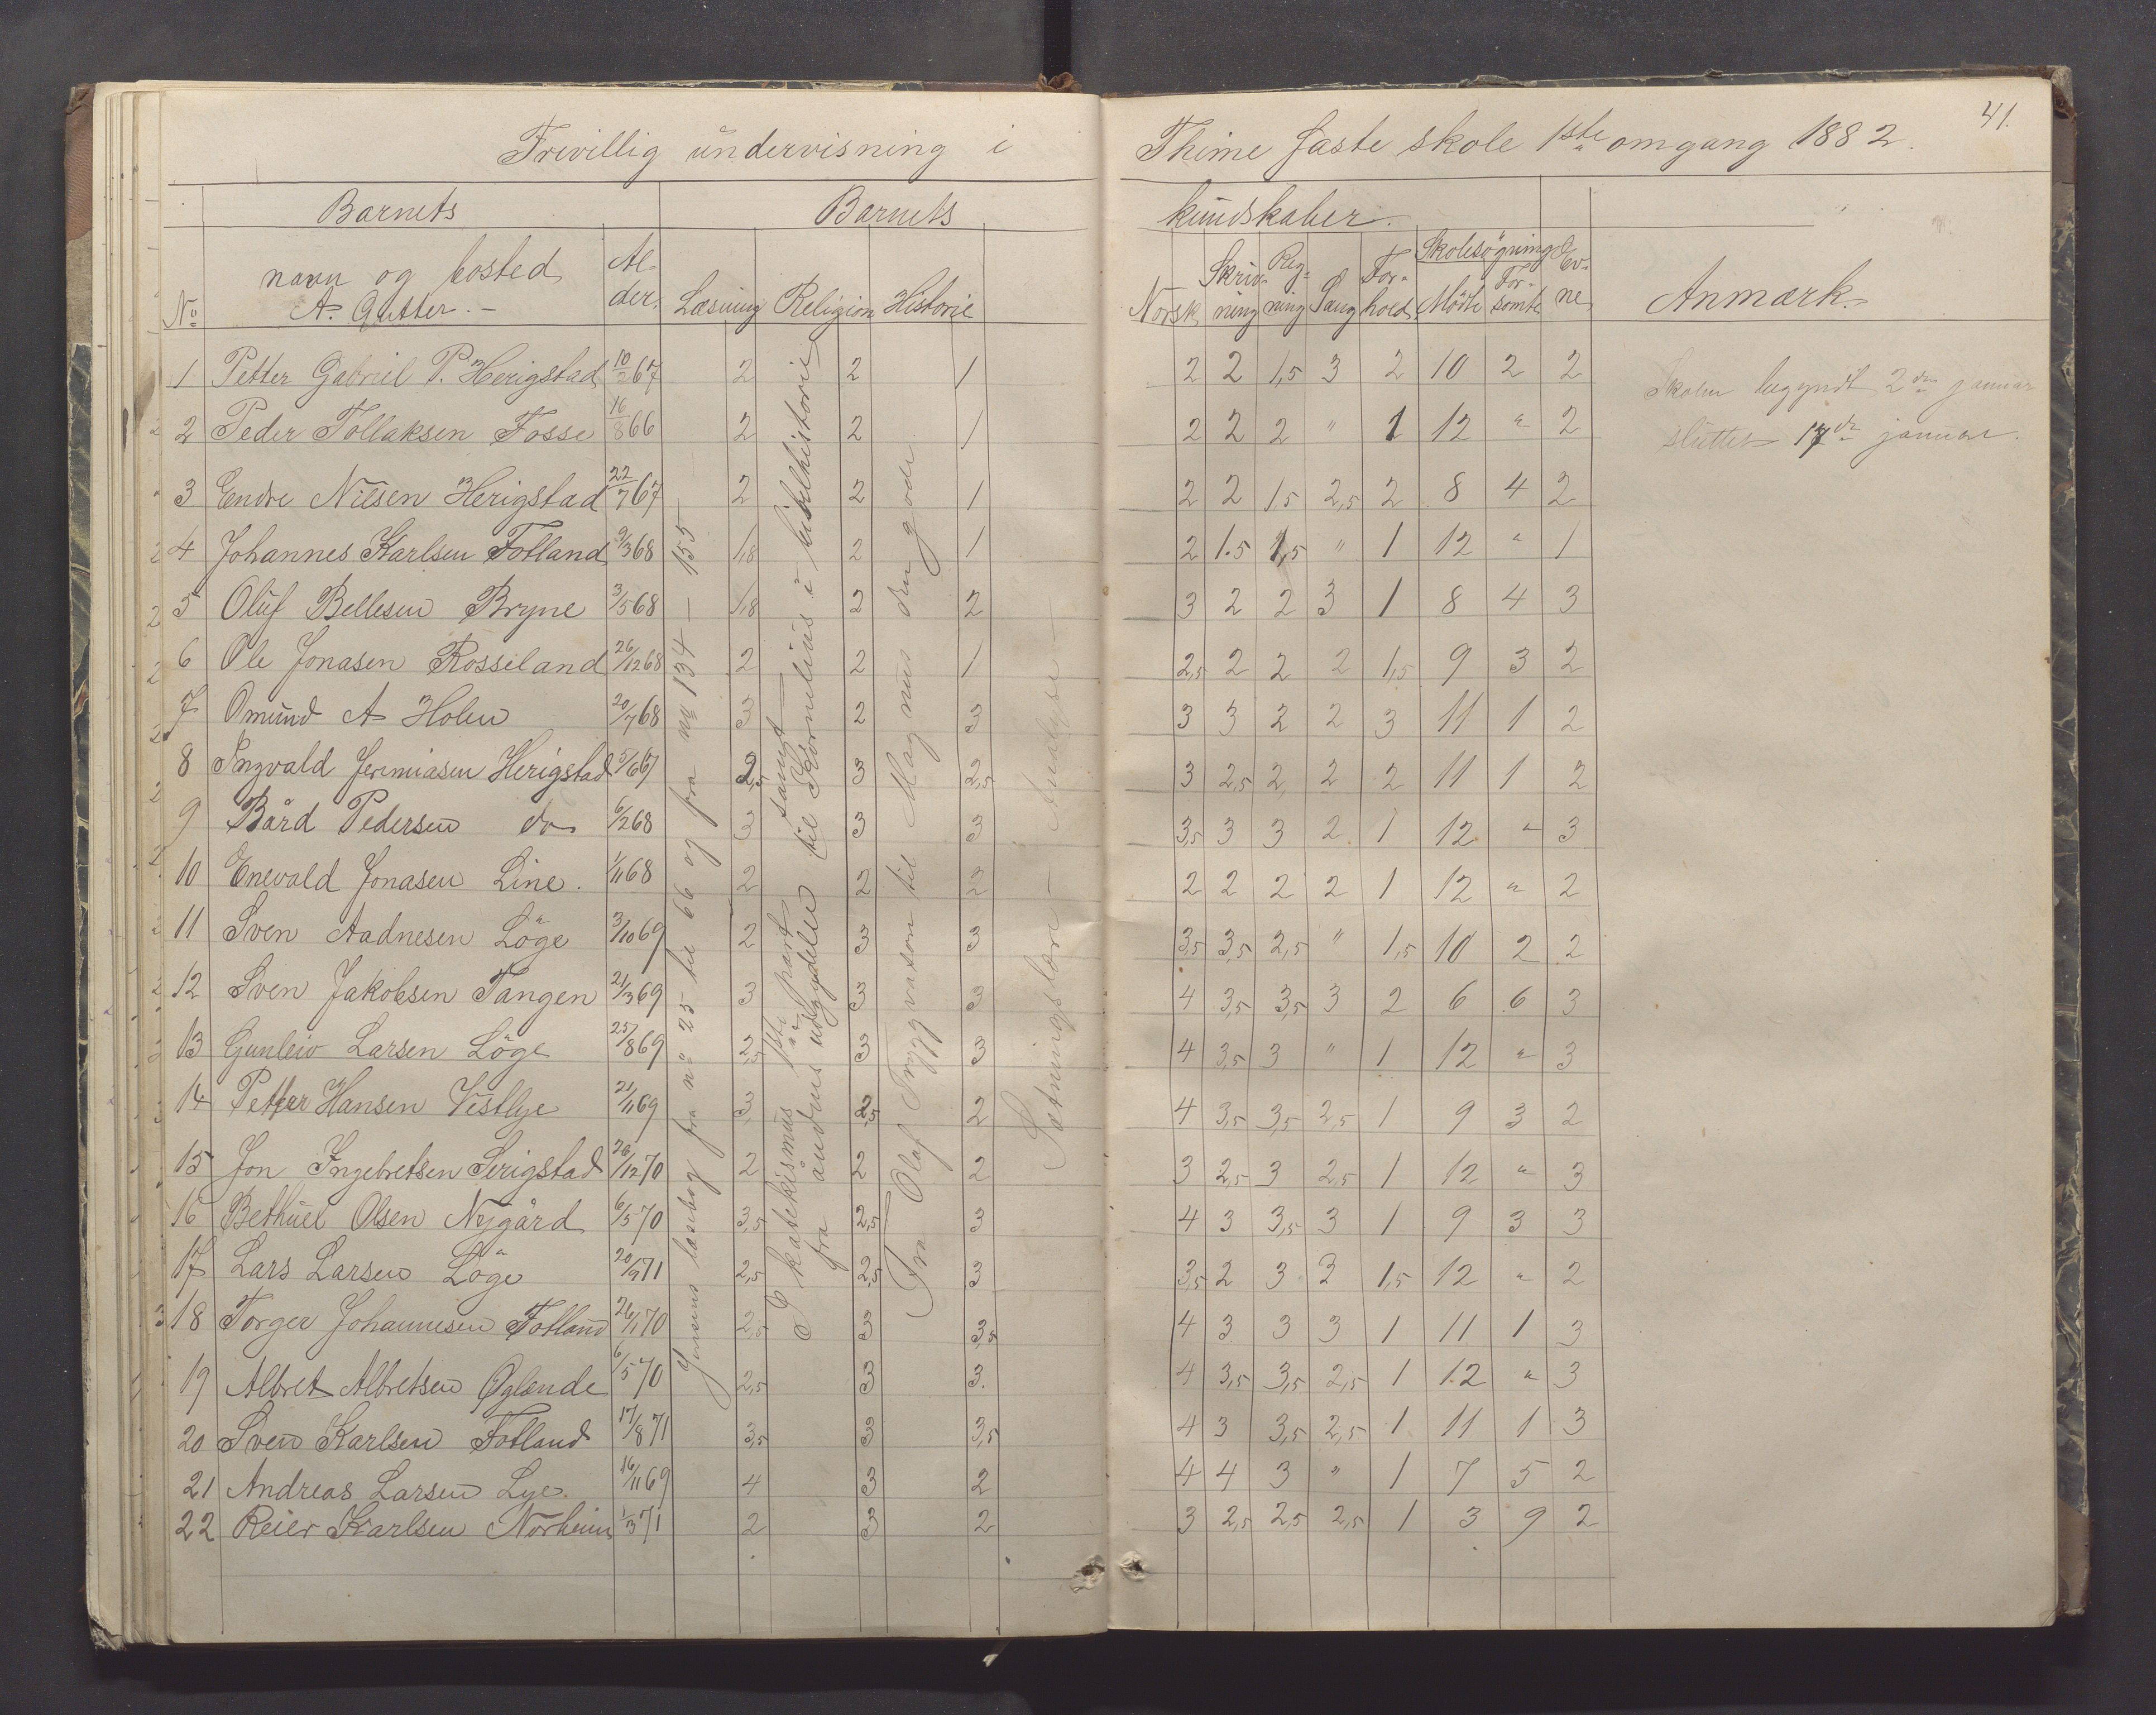 Frivillig undervisning i Thime faste skole 1ste omgang 1882.
41.
Barnets Barnets kundskaber.
No navn og bosted Al- der. Læsning Religion Historie Norsk Skriv- ning Reg- ning Sang For- hold Skolesögning Mödte For- sömte Ev- ne Anmærk.
A. Gutter. -
1 Petter Gabriel P. Herigstad 10/2 67 2 2 1 2 2 1,5 3 2 10 2 2
2 Peder Tollaksen Fosse 16/8 66 2 2 1 2 2 2 " 1 12 " 2
3 Endre Nilsen Herigstad 22/7 67 2 2 1 2 2 1,5 2,5 2 8 4 2
4 Johannes Karlsen Fotland 9/3 68 1,8 2 1 2 1.5 1,5 " 1 12 " 1
5 Oluf Bellesen Bryne 3/5 68 1,8 2 2 3 2 2 3 1 8 4 3
6 Ole Jonasen Rosseland 26/12 68 2 2 1 2,5 2 2 2 1,5 9 3 2
7 Omund A Holen 20/7 68 3 2 3 3 3 2 2 3 11 1 2
8 Ingvald Jeremiasen Herigstad 5/6 67 2,5 3 2,5 3 2,5 2 2 2 11 1 2
9 Bård Pedersen do 6/2 68 3 3 3 3,5 3 3 2 1 12 " 3
10 Enevald Jonasen Line. 1/11 68 2 2 2 2 2 2 2 1 12 " 2
11 Sven Aadnesen Löge 3/10 69 2 3 3 3,5 3,5 2,5 " 1,5 10 2 2
12 Sven Jakobsen Tangen 21/3 69 3 3 3 4 3,5 3,5 3 2 6 6 3
13 Gunleiv Larsen Löge 25/8 69 2,5 3 3 4 3,5 3 " 1 12 " 3
14 Petter Hansen Vestlye 21/11 69 3 2,5 2 4 3,5 3,5 2,5 1 9 3 2
15 Jon Ingebretsen Serigstad 26/12 70 2 2 2 3 2,5 3 2,5 1 12 " 3
16 Bethuel Olsen Nygård 6/5 70 3,5 2,5 3 4 3 3,5 3 1 9 3 3
17 Lars Larsen Löge 20/9 71 2,5 2,5 3 3,5 2 3 3 1,5 12 " 2
18 Torger Johannesen Fotland 26/1 70 2,5 3 3,5 4 3 3 3 1 11 1 3
19 Albret Albretsen Øglænde 6/5 70 2,5 3 3. 4 3,5 3,5 2,5 1 12 " 3
20 Sven Karlsen Fotland 17/8 71 3,5 3 3,5 4 3 3,5 2,5 1 11 1 3
21 Andreas Larsen Lye. 16/11 69 4 3 2 4 4 3 " 1 7 5 2
22 Reier Karlsen Norheim 1/3 71 2 3 2 3 2,5 2,5 2,5 1 3 9 2
Jensens læsebog fra no 25 til 66 og fra no 134 - 155
I katekismus 1ste part samt
fra åndens udgydelse til Kornelius i bibelhistorie
Fra Olaf Trygvason til Magnus den gode
Sætningslære - Analyse -
Skolen begyndt 2den januar
sluttet 17de januar.